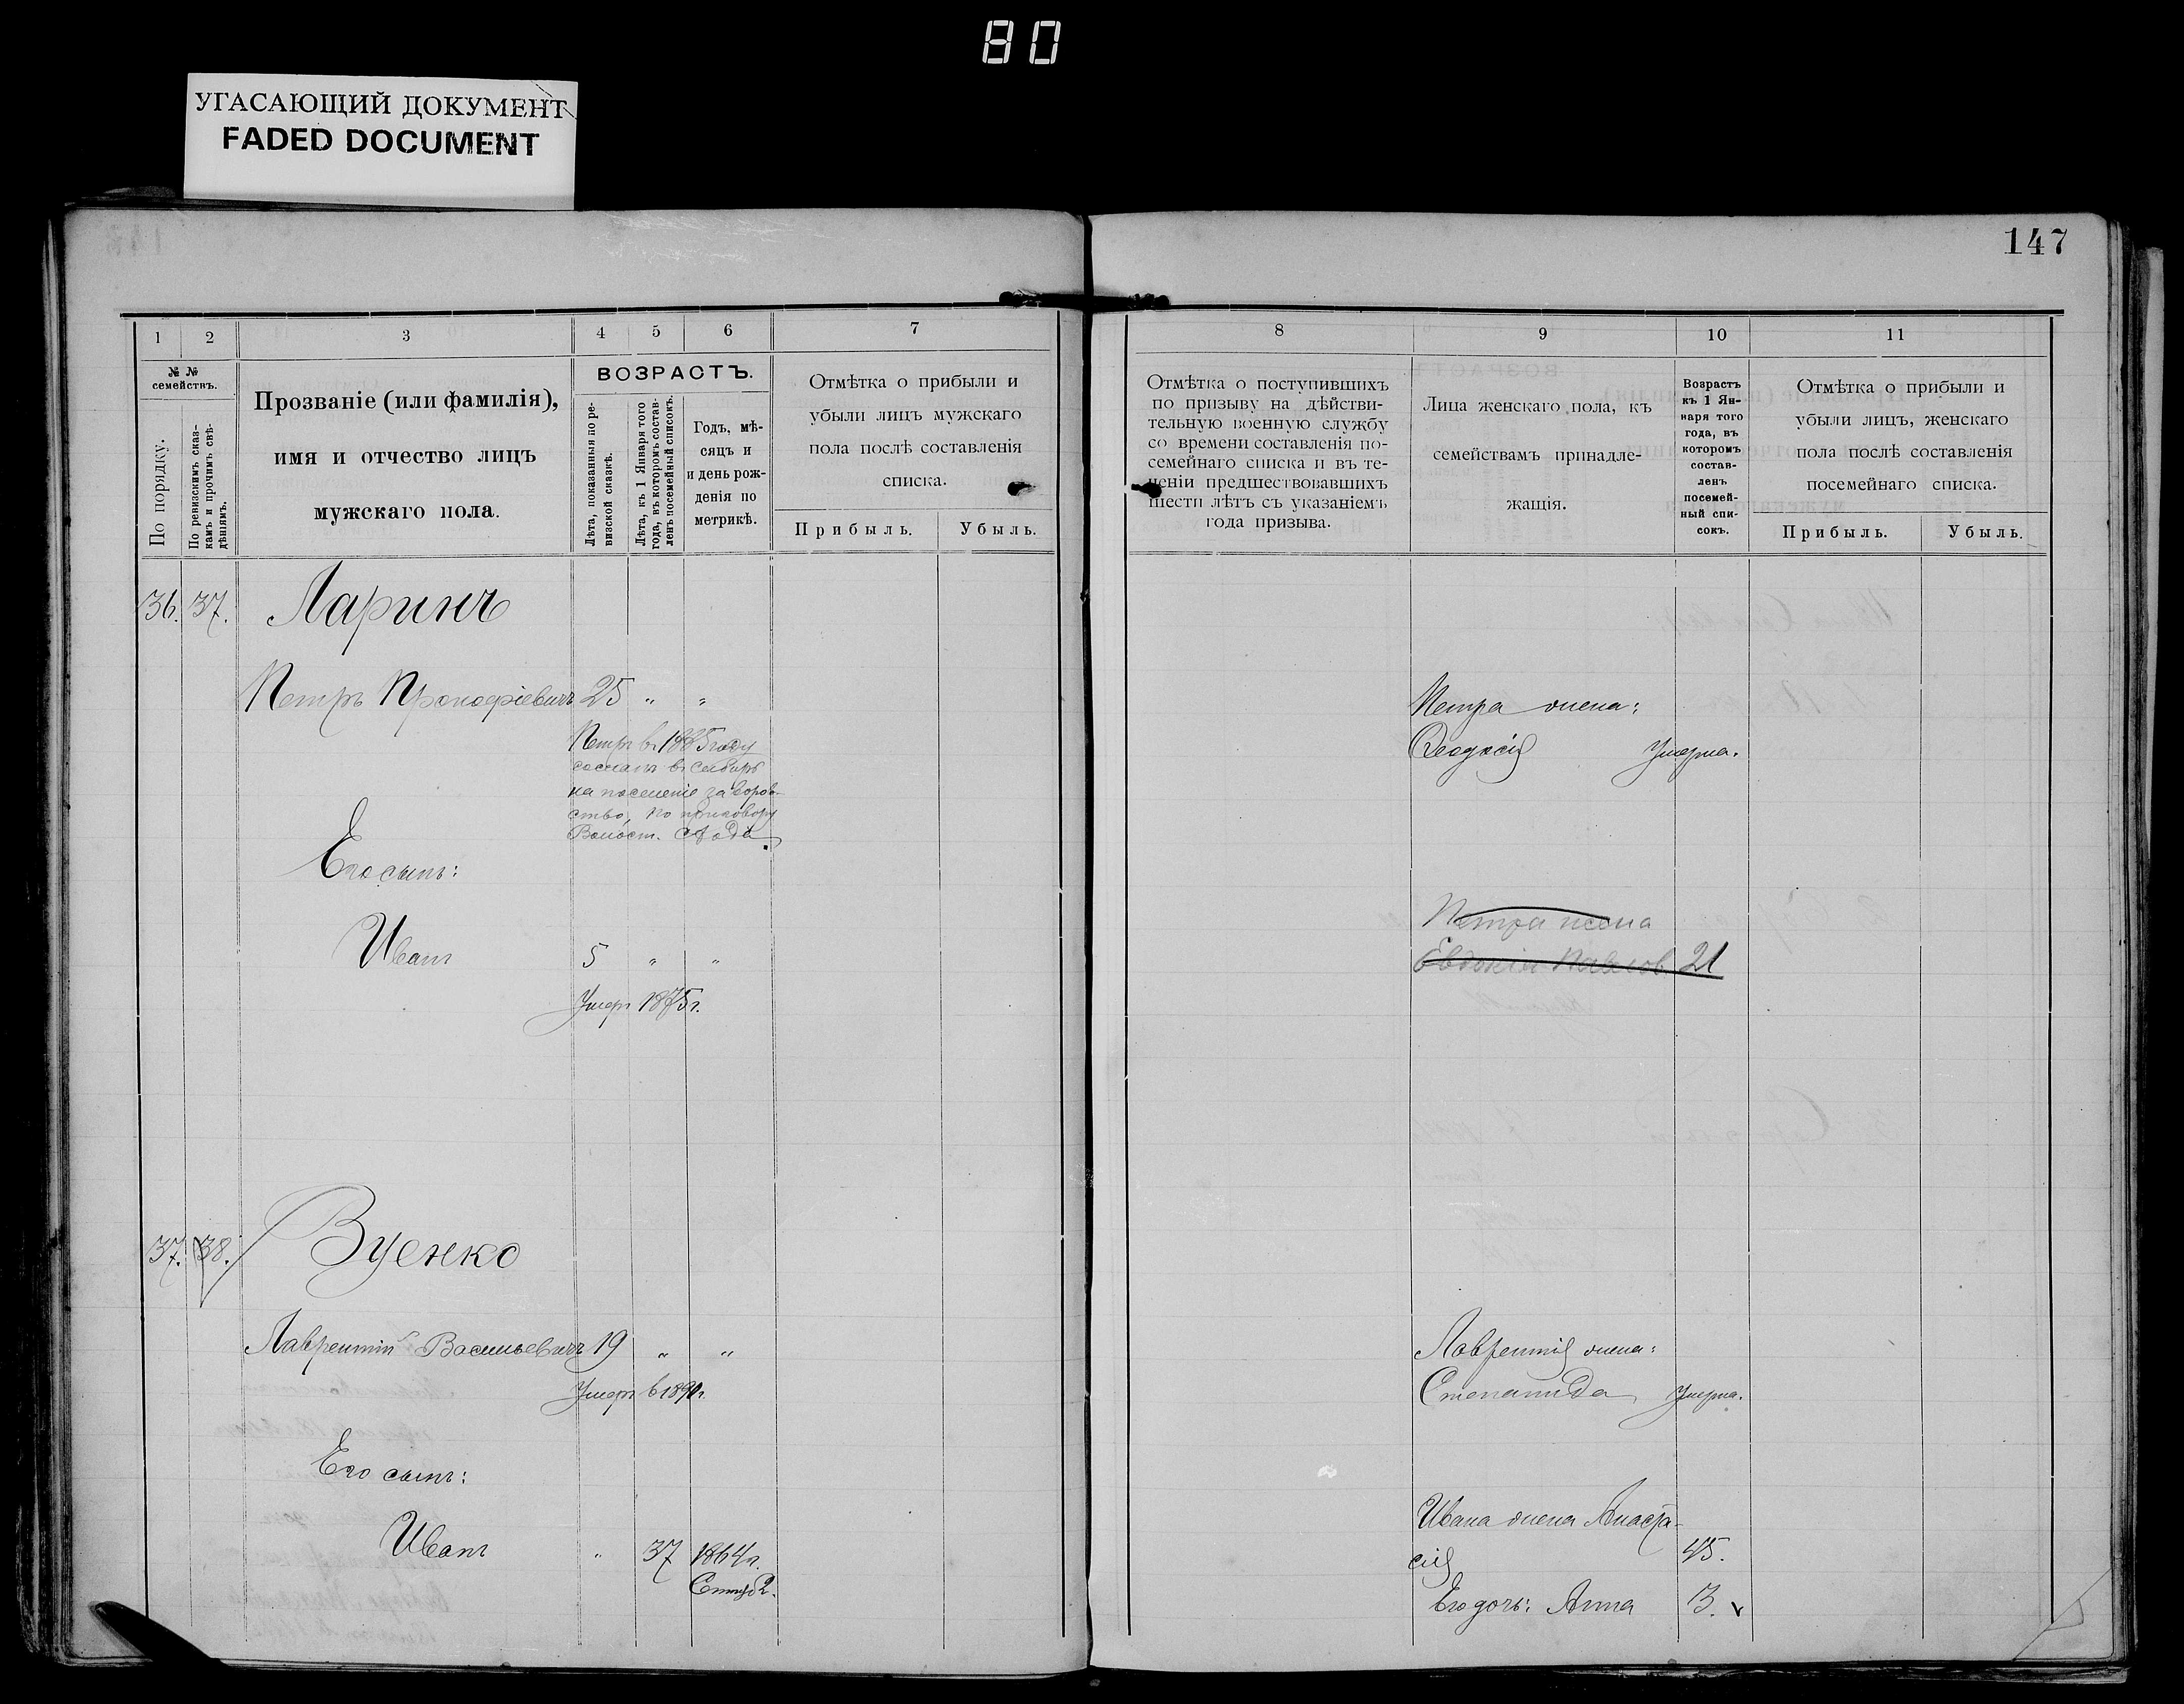 80
УГАСАЮЩИЙ ДОКУМЕНТ
FADED DOCUMENT
147
1 2 3 4 5 6 7
№ №
семействъ.
По порядку.
По ревизскимъ сказ-
камъ и прочимъ свѣ-
дѣніямъ.
Прозваніе (или фамилія),
имя и отчество лицъ
мужскаго пола.
ВОЗРАСТЪ.
Лѣта, показанныя по ре-
визской сказкѣ.
Лѣта, къ 1 Января того
года, въ которомъ состав-
ленъ посемейный списокъ.
Годъ, мѣ-
сяцъ и
и день рож-
денія по
метрикѣ.
Отмѣтка о прибыли и
убыли лицъ мужскаго
пола послѣ составленія
списка.
Прибыль. Убыль.
8 9 10 11
Отмѣтка о поступившихъ
по призыву на дѣйстви-
тельную военную службу
со времени составленія по-
семейнаго списка и въ те-
ченіи предшествовавшихъ
шести лѣтъ съ указаніемъ
года призыва.
Лица женскаго пола, къ
семействамъ принадле-
жащія.
Возрастъ
къ 1 Ян-
варя того
года, въ
которомъ
состав-
ленъ
посемей-
ный спи-
сокъ.
Отмѣтка о прибыли и
убыли лицъ, женскаго
пола послѣ составленія
посемейнаго списка.
Прибыль. Убыль.
36. 37. Ларинъ
Петръ Прокофіевичъ 25 " "
Петръ въ 1885 году
сосланъ въ Сибирь
на поселеніе за воров-
ство, по приговору
Волост. схода.
Его сынъ:
Иванъ 5 " "
Умеръ 1875 г.
Петра жена:
Ѳеодосія Умерла.
Петра жена
Евдокія Павлов. 21
37. 38. Зуенко
Лаврентій Васильевичъ 19 " "
Умеръ в 1891 г.
Его сынъ:
Иванъ " 37 1864 г.
2.
Лаврентія жена:
Степанида Умерла.
Ивана жена Анаста-
сія 45.
Его дочь: Анна 13.